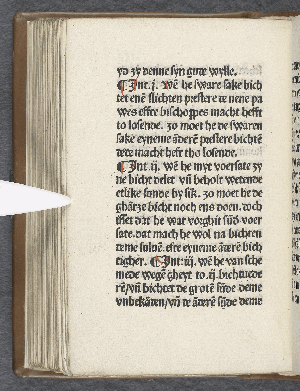 yd zy denne syn gute wylle.
¶ Int. j. wē he sware sake bich
tet enē slichten prestere te nene pa
wes effte bischoppes macht hefft
to losende. zo moet he de swaren
sake eyneme āderē prestere bichtē
tete macht hefft tho losende.
¶ Int. ij. wē he myt voersate zy
ne bicht delet vñ beholt wetende
etlike sonde by sik. zo moet he de
gbātze bicht noch ens doen. och
isset dat he wat vorghit sūd voer
sate. dat mach he wol na bichten
teme soluē. efte eyneme āderē bich
tigher. ¶ Int: iij. wē he van sche
mede wegē gheyt to .ij. bichtuede
rē/ vñ bichtet de grotē sūde deme
vnbekāten/ vñ te āderē sūde deme